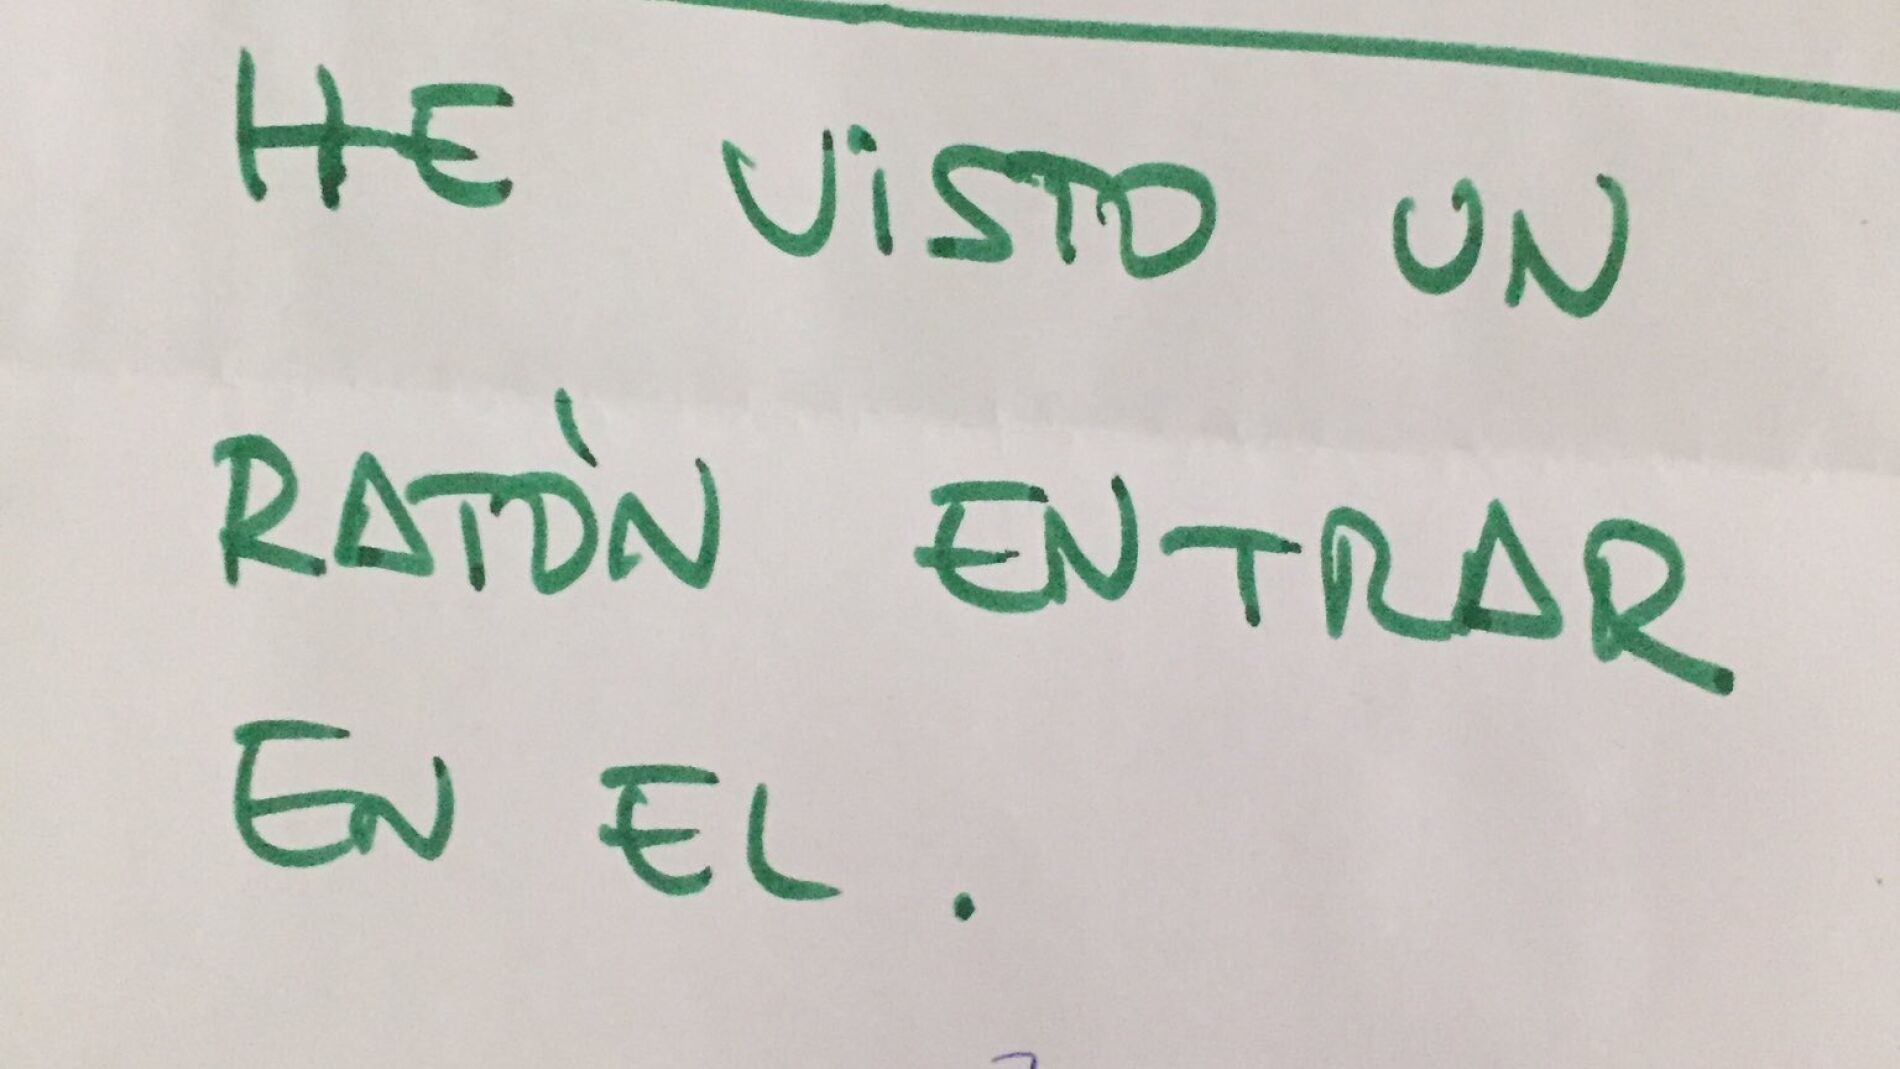 HE ViSTO UN
RATÒN ENTRAR
EN EL .